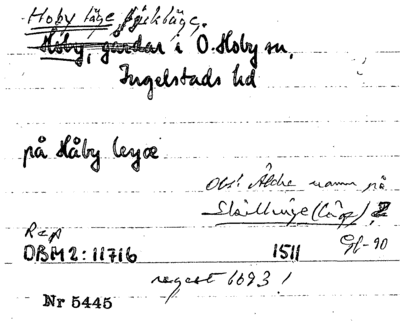 Hoby läge, fiskläge.
Hoby, gårdar i Ö. Hoby sn,
Ingelstads hd
på Håby leyæ
Obs! Äldre namn på
Skillinge (läge)
Rep
DBM 2: 11716 1511 GH-90
regest 6693!
Nr 5445